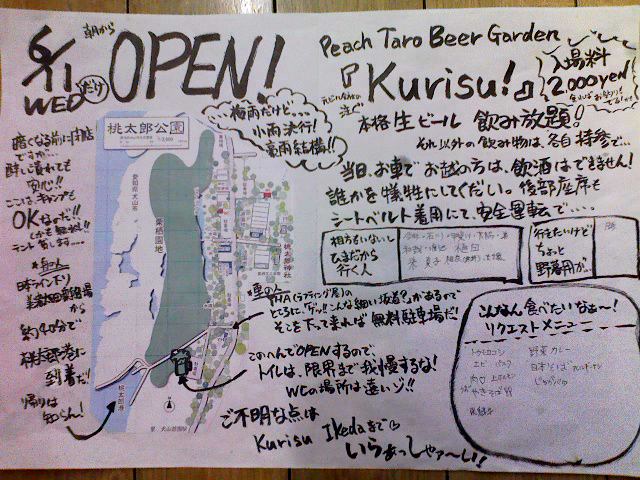 6/11
WED だけ
朝から
OPEN!
Peach Taro Beer Garden
『Kurisu!』
入場料
2000yen
本格生ビール 飲み放題!
それ以外の飲み物は、各自持参で…
…梅雨だけど…
小雨決行!
豪雨結構!!
当日、お車でお越の方は、飲酒はできません!
誰かを犠牲にしてください。後部座席も
シートベルト着用にて、安全運転で…。
暗くなる前に閉店
ですが…
酔い潰れても
安心!!
ここは、キャンプも
OKなのだ!!
しかも無料!!
テント
桃太郎公園
愛知県犬山市
栗栖園地
桃太郎神社
桃太郎港
至、犬山遊園駅
相方もいないし
ひまだから
行く人
行きたいけど
ちょっと
野暮用が…
*車の人
THA(ラフティング屋)の
ところに、「下ッ!こんな細い坂道?」があるので
そこを下って来れば無料駐車場だ!
この へんでOPENするので、
トイレは、限界まで我慢するな!
WCの場所は遠いゾ!!
から
約40分で
桃太郎港に
到着だ!
帰りは
知らん!
こんなん食べたいなぁ〜!
リクエストメニュー
トウモロコシ
野菜カレー
エビ
日本そば
じゃがバタ
ご不明な点は
Kurisu Ikedaまで
いらぁっしゃぁ〜い!!